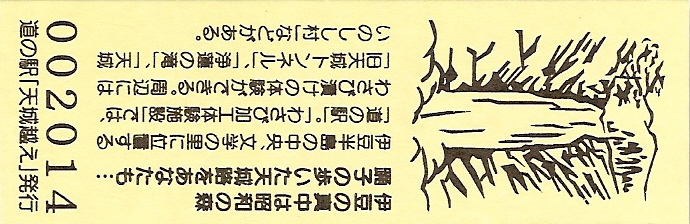 伊豆の真中は昭和の森
踊子の歩いた天城路をあなたも…
伊豆半島の中央、文学の里に位置する
「道の駅」。「わさび加工体験施設」では、
わさび漬けの体験ができる。周辺には
「旧天城トンネル」、「浄蓮の滝」、「天城
いのしし村」などがある。
002014
道の駅「天城越え」発行